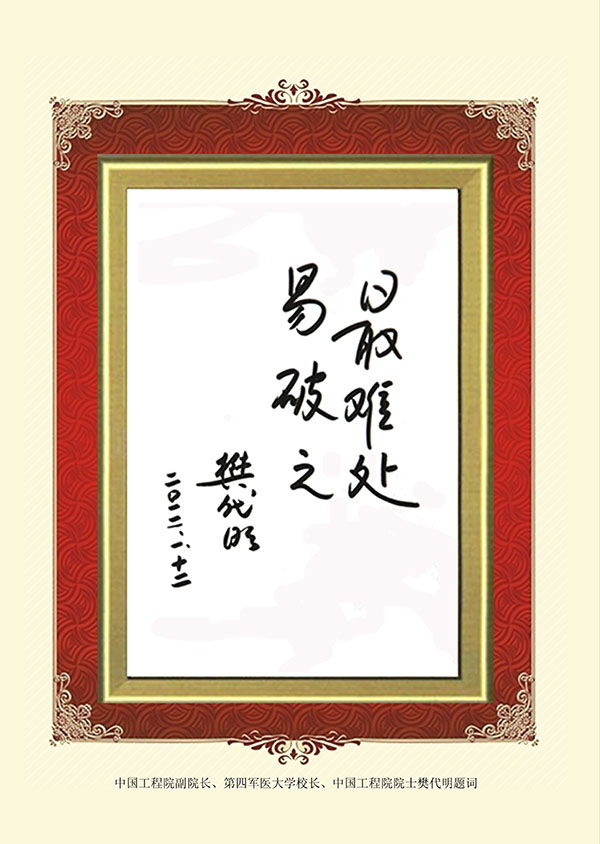 最难处
易破之
樊代明
二〇一二、一、十二
中国工程院副院长、第四军医大学校长、中国工程院院士樊代明题词